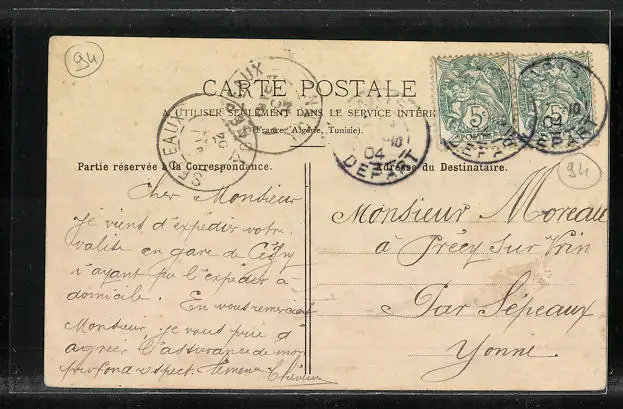 94
CARTE POSTALE
A UTILISER SEULEMENT DANS LE SERVICE INTÉRIEUR
(France, Algérie, Tunisie).
SEPEAUX
PARIS
10
04
DEPART
5c
5c
POSTES
PARIS
10
04
DEPART
94
Partie réservée à la Correspondance.
Adresse du Destinataire.
Cher Monsieur
Je viens d'expédier votre
valise en gare de Cézy
n'ayant pu l'expédier à
domicile. En vous remerciant
Monsieur, je vous prie d'
agréer l'assurance de mon
profond respect.
Monsieur Moreau
à Précy sur Vrin
Par Sépeaux
Yonne.